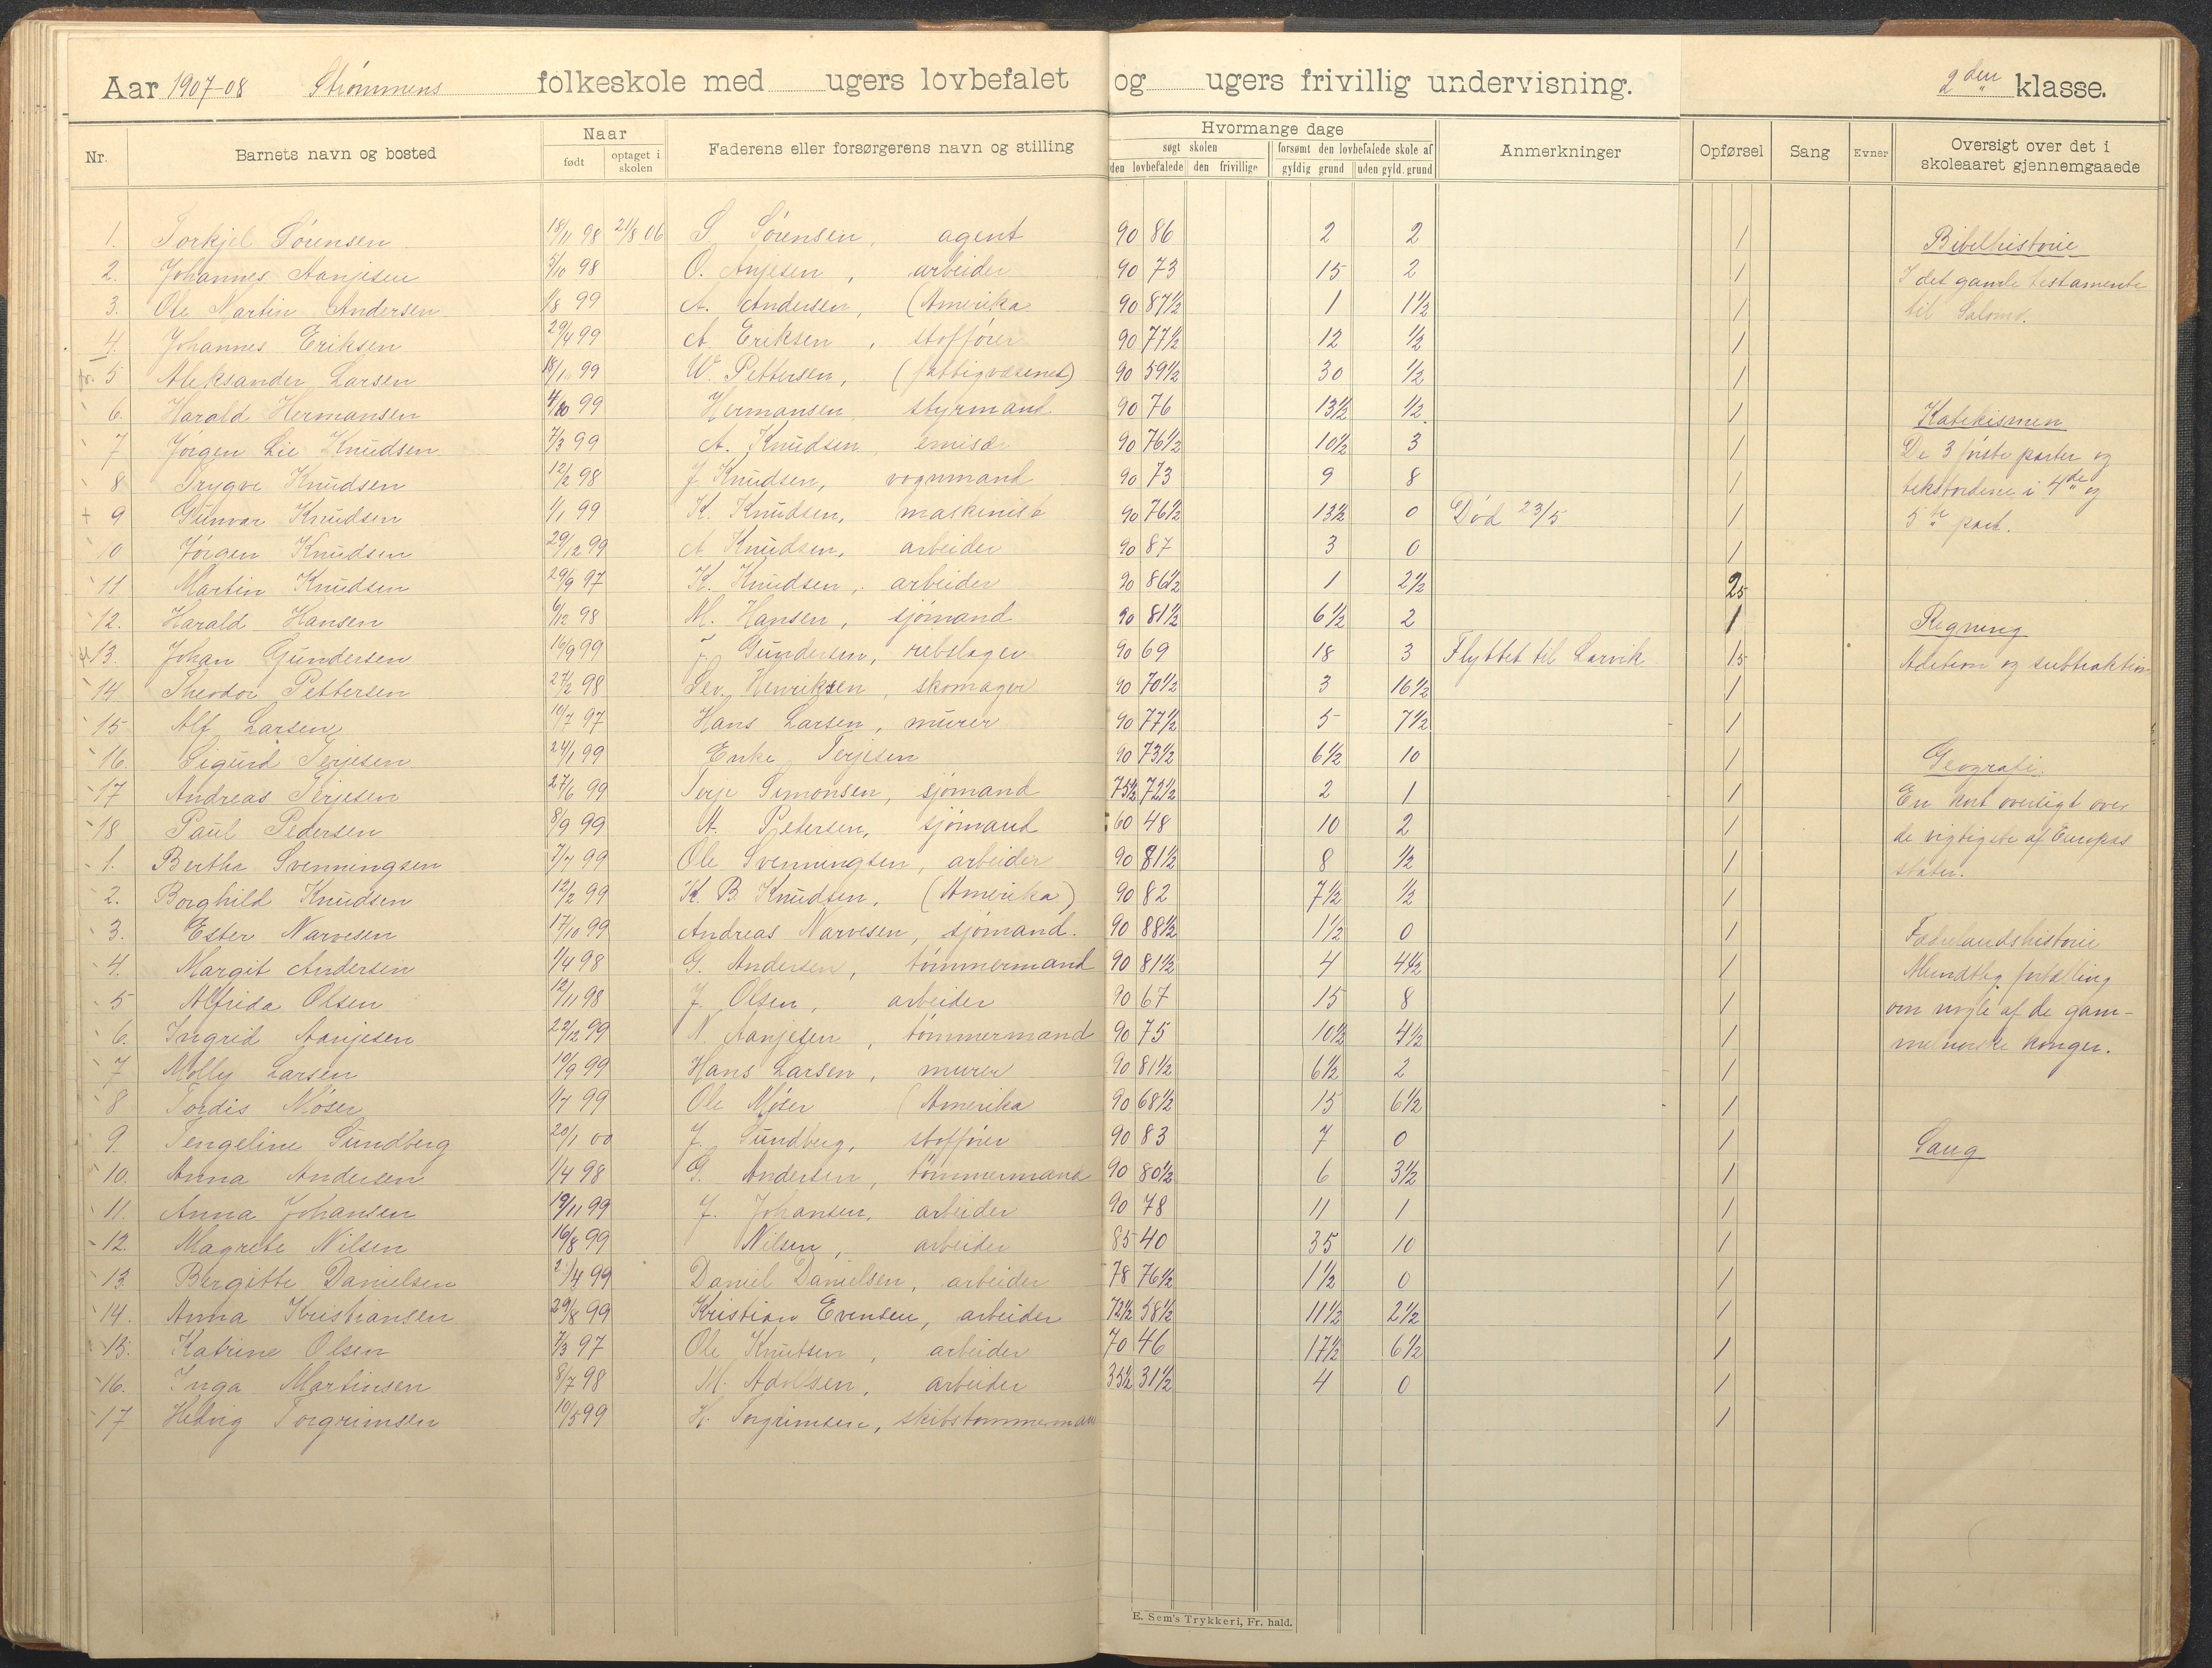 Aar 1907-08 Strømmens folkeskole med ugers lovbefalet og ugers frivillig undervisning. 2den klasse.
Nr. Barnets navn og bosted Naar født optaget i skolen Faderens eller forsørgerens navn og stilling Hvormange dage søgt skolen den lovbefalede den frivillige forsømt den lovbefalede skole af gyldig grund uden gyld. grund Anmerkninger Opførsel Sang Evner Oversigt over det i skoleaaret gjennemgaaede
1. Torkjel Sørensen 18/11 98 21/8 06 S Sørensen, agent 90 86 2 2 / Bibelhistorie
2. Johannes Aanjesen 5/10 98 O. Anjesen, arbeider 90 73 15 2 / I det gamle testamente
3. Ole Martin Andersen 1/8 99 A. Andersen, (Amerika 90 87½ 1 1½ / til Salomo.
4. Johannes Eriksen 29/4 99 A. Eriksen, stoffører 90 77½ 12 ½ /
5 Aleksander Larsen 18/1 99 W. Pettersen, (fattigvæsenet) 90 59½ 30 ½ /
6. Harald Hermansen 4/10 99 Hermansen styrmand 90 76 13½ ½ / Katekismen
7 Jørgen Lie Knudsen 7/3 99 A. Knudsen emisær 90 76½ 10½ 3 / De 3 første parter og
8 Trygve Knudsen 12/2 98 J. Knudsen, vognmand 90 73 9 8 / tekstordene i 4de og
+ 9 Gunvar Knudsen 1/1 99 K. Knudsen, maskinist 90 76½ 13½ 0 Død 23/5 / 5te part.
0 Jørgen Knudsen 29/12 99 A Knudsen, arbeider 90 87 3 0 /
11 Martin Knudsen 29/9 97 K. Knudsen, arbeider 90 86½ 1 2½ 25
12. Harald Hansen 6/12 98 M. Hansen, sjømand 90 81½ 6½ 2 / Regning
13. Johan Gundersen 16/9 99 Gundersen, rebslager 90 69 18 3 Flyttet til Larvik 15 Adition og subtraktion
14 Theodor Pettersen 27/2 98 Sev. Henriksen, skomager 90 70½ 3 16½ /
15 Alf Larsen 10/7 97 Hans Larsen, murer 90 77½ 5 7½ /
16. Sigurd Terjesen 24/1 99 Enke Terjesen 90 73½ 6½ 10 / Geografi.
17 Andreas Terjesen 27/6 99 Terje Simonsen, sjømand 75½ 72½ 2 1 / En kort oversigt over
18 Paul Pedersen 8/9 99 A. Petersen, sjømand 60 48 10 2 / de vigtigste af Europas
1. Bertha Svenningsen 7/7 99 Ole Svenningsen, arbeider 90 81½ 8 ½ / stater.
2. Borghild Knudsen 12/2 99 K. B. Knudsen, (Amerika) 90 82 7½ ½ /
3. Ester Narvesen 17/10 99 Andreas Narvesen, sjømand. 90 88½ 1½ 0 / Fædrelandshistorie
4. Margit Andersen 1/4 98 G. Andersen, tømmermand 90 81½ 4 4½ / Mundtlig fortælling
5 Alfrida Olsen 12/11 98 J. Olsen, arbeider 90 67 15 8 / om nogle af de gam-
6. Ingrid Aanjesen 22/12 99 N. Aanjesen, tømmermand 90 75 10½ 4½ / melnorske konger.
7 Molly Larsen 10/9 99 Hans Larsen, murer 90 81½ 6½ 2 /
8 Tordis Møser 1/7 99 Ole Møser (Amerika 90 68½ 15 6½ /
9. Tengeline Sundberg 20/1 00 J. Sundberg, stoffører 90 83 7 0 / Sang
10. Anna Andersen 1/4 98 G. Andersen, tømmermand 90 80½ 6 3½ /
11. Anna Johansen 19/11 99 J. Johansen, arbeider 90 78 11 1 /
12. Magrete Nilsen 16/8 99 Nilsen, arbeider 85 40 35 10 /
13 Birgitte Danielsen 2/4 99 Daniel Danielsen, arbeider 78 76½ 1½ 0 /
14. Anna Kristiansen 29/8 99 Kristian Evensen, arbeider 72½ 58½ 11½ 2½ /
15. Katrine Olsen 7/3 97 Ole Knutsen, arbeider 70 46 17½ 6½ /
16. Inga Martinsen 8/7 98 M. Adolsen, arbeider 35½ 31½ 4 0 /
17 Hedvig Torgrimsen 10/5 99 H. Torgrimsen, skibstømmerman /
E. Sem's Trykkeri, Fr. hald.